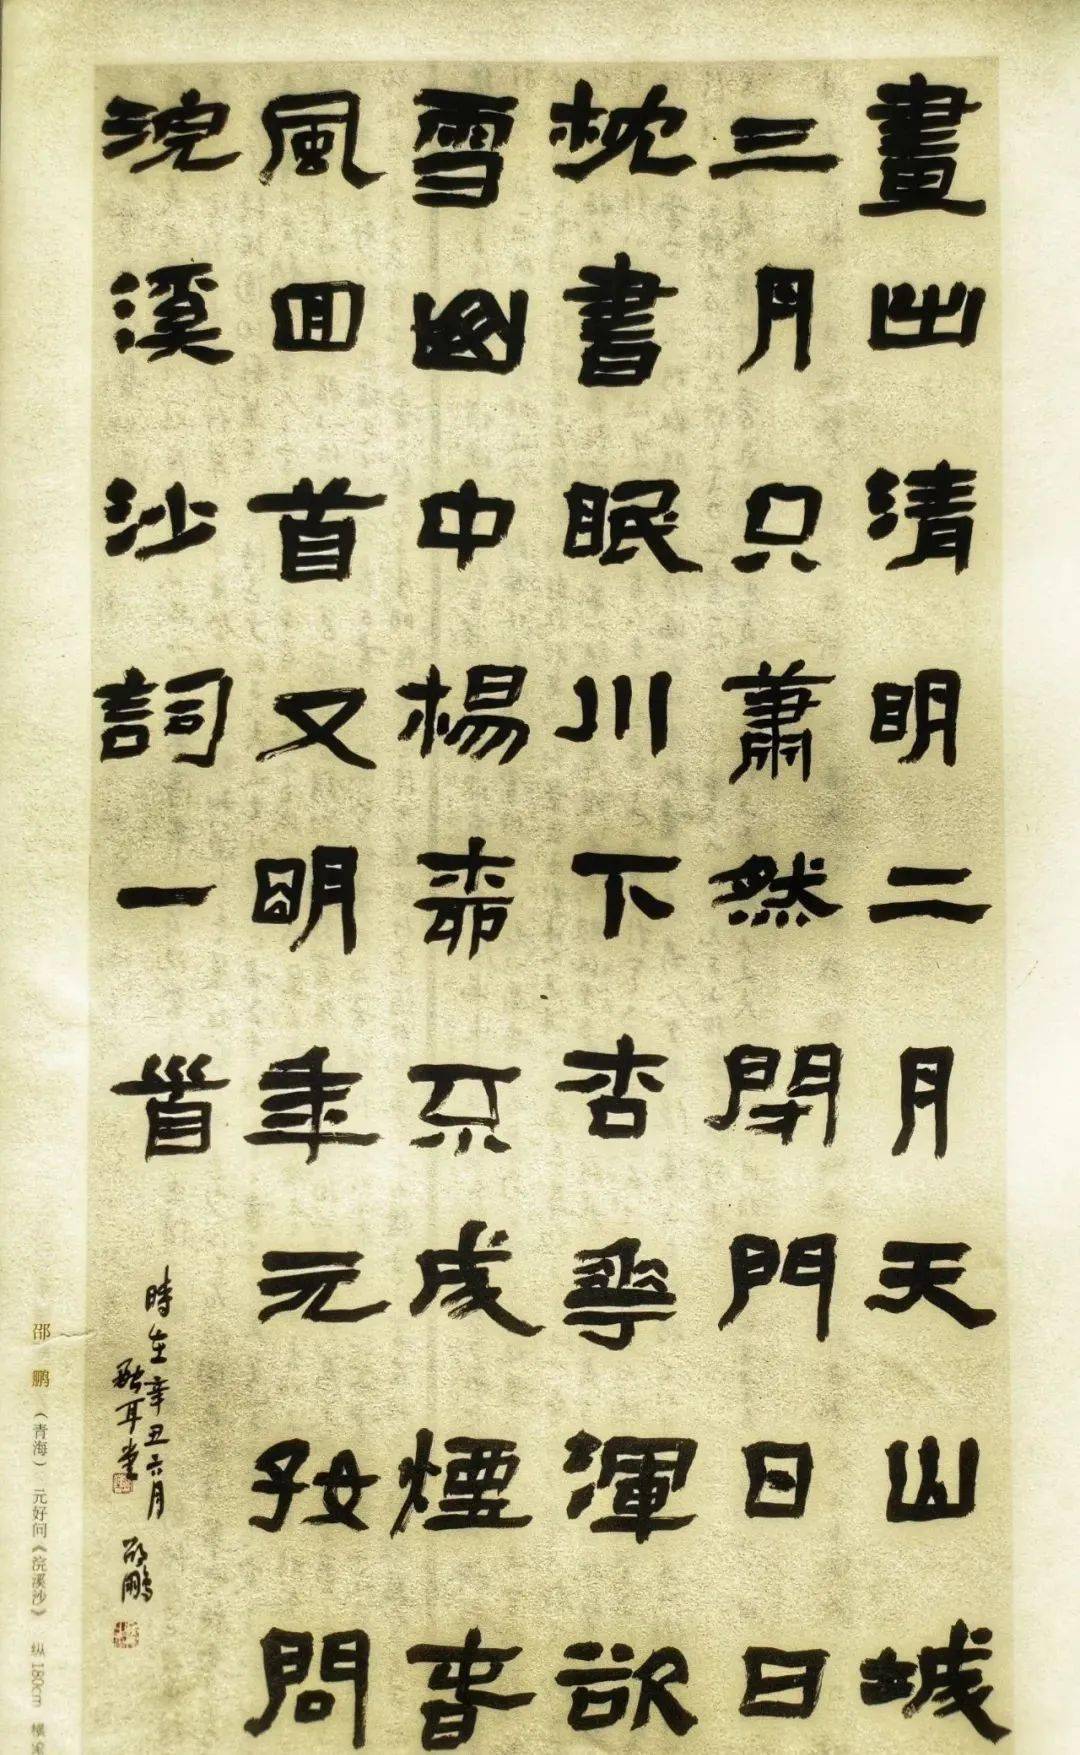 畫出清明二月天山城
三月只蕭然閉門日日
枕書眠川下杏華渾欲
雪山中楊柳不成煙春
風回首又明年元好問
浣溪沙詞一首
時在辛丑六月 邵鵬
耳堂
邵 鹏 （青海） 元好问《浣溪沙》 纵180cm 横